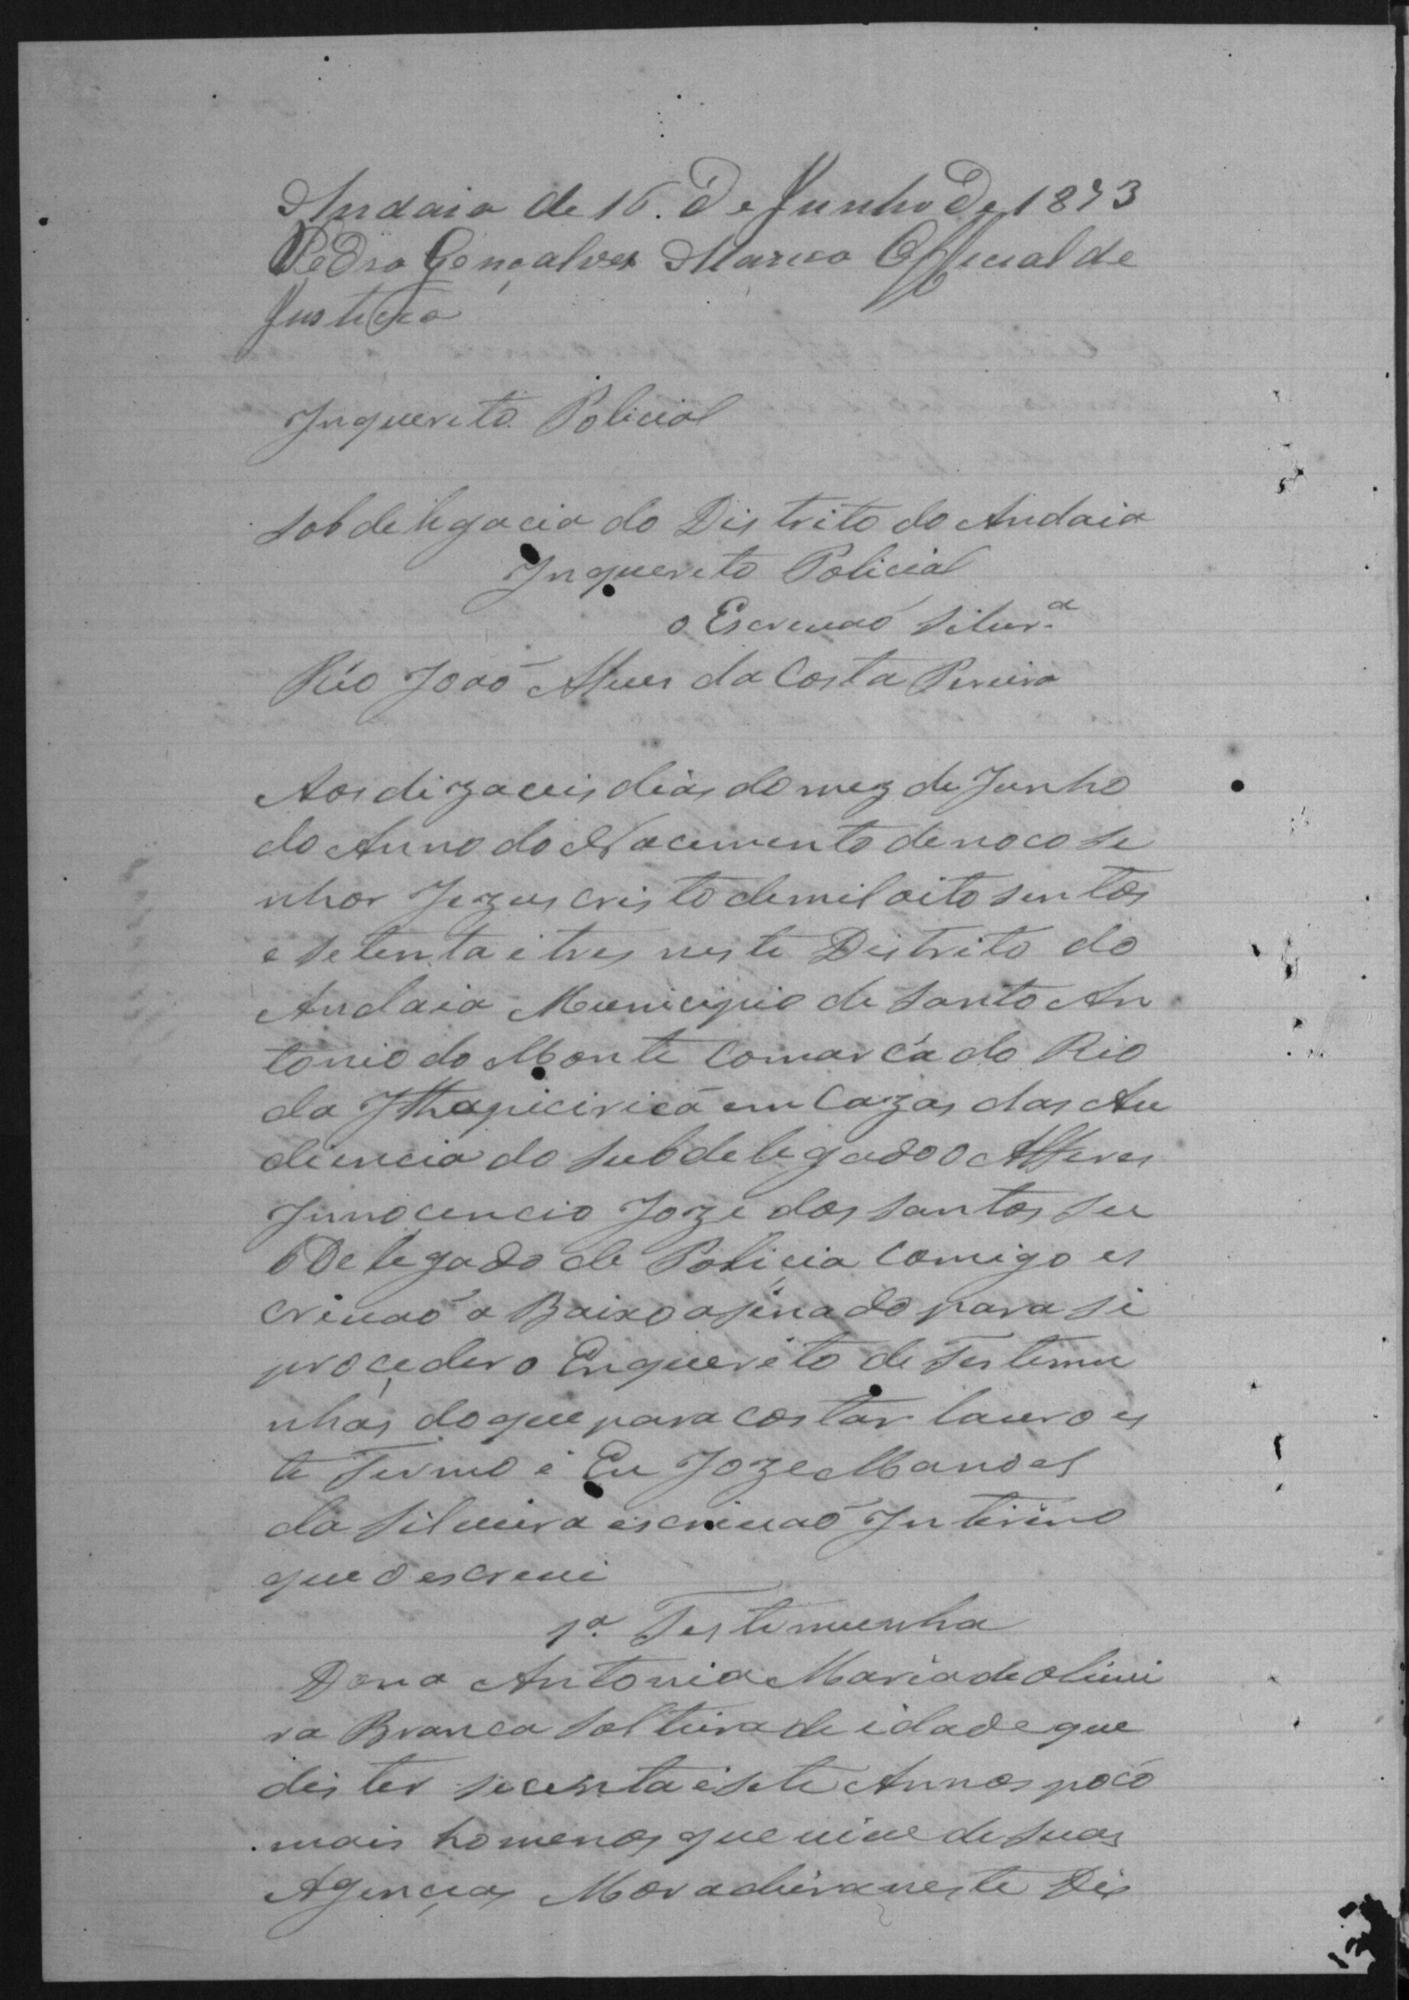 Andaia de 16. De Junho De 1873
Pedro Gonçalves Marico Official de
Justicia
Inquerito Policial
Sobdelegacia do Distrito do Andaia
Inquerito Policial
o Escrivaó Silvr.ª
Réo Joaó Alves da Costa Pereira
Aos dizaceis dias do mez de Junho
do Anno do Nacimento de noco Se
nhor Jezus cristo de mil oito sentos
e Setenta e tres neste Distrito do
Andaia Municipio de Santo An
tonio do Monte Comarca do Rio
da Ithapicirica em Cazas das Au
diencia do Subdelegado o Alferes
Innocencio Joze dos Santos Su
bDelegado de Policia Comigo es
crivaó a Baixo asinado para si
proceder o Enquerito de Testemu
nhas do que para costar lavro es
te Termo e Eu Joze Manoel
da Silveira escrivaó Intirino
que o escrevi
1ª. Testimunha
Dona Antonia Maria de olivei
ra Branca Solteira de idade que
dis ter secenta e Sete Annos poco
mais ho menos que vive de Suas
Agencias Moradeira neste Dis